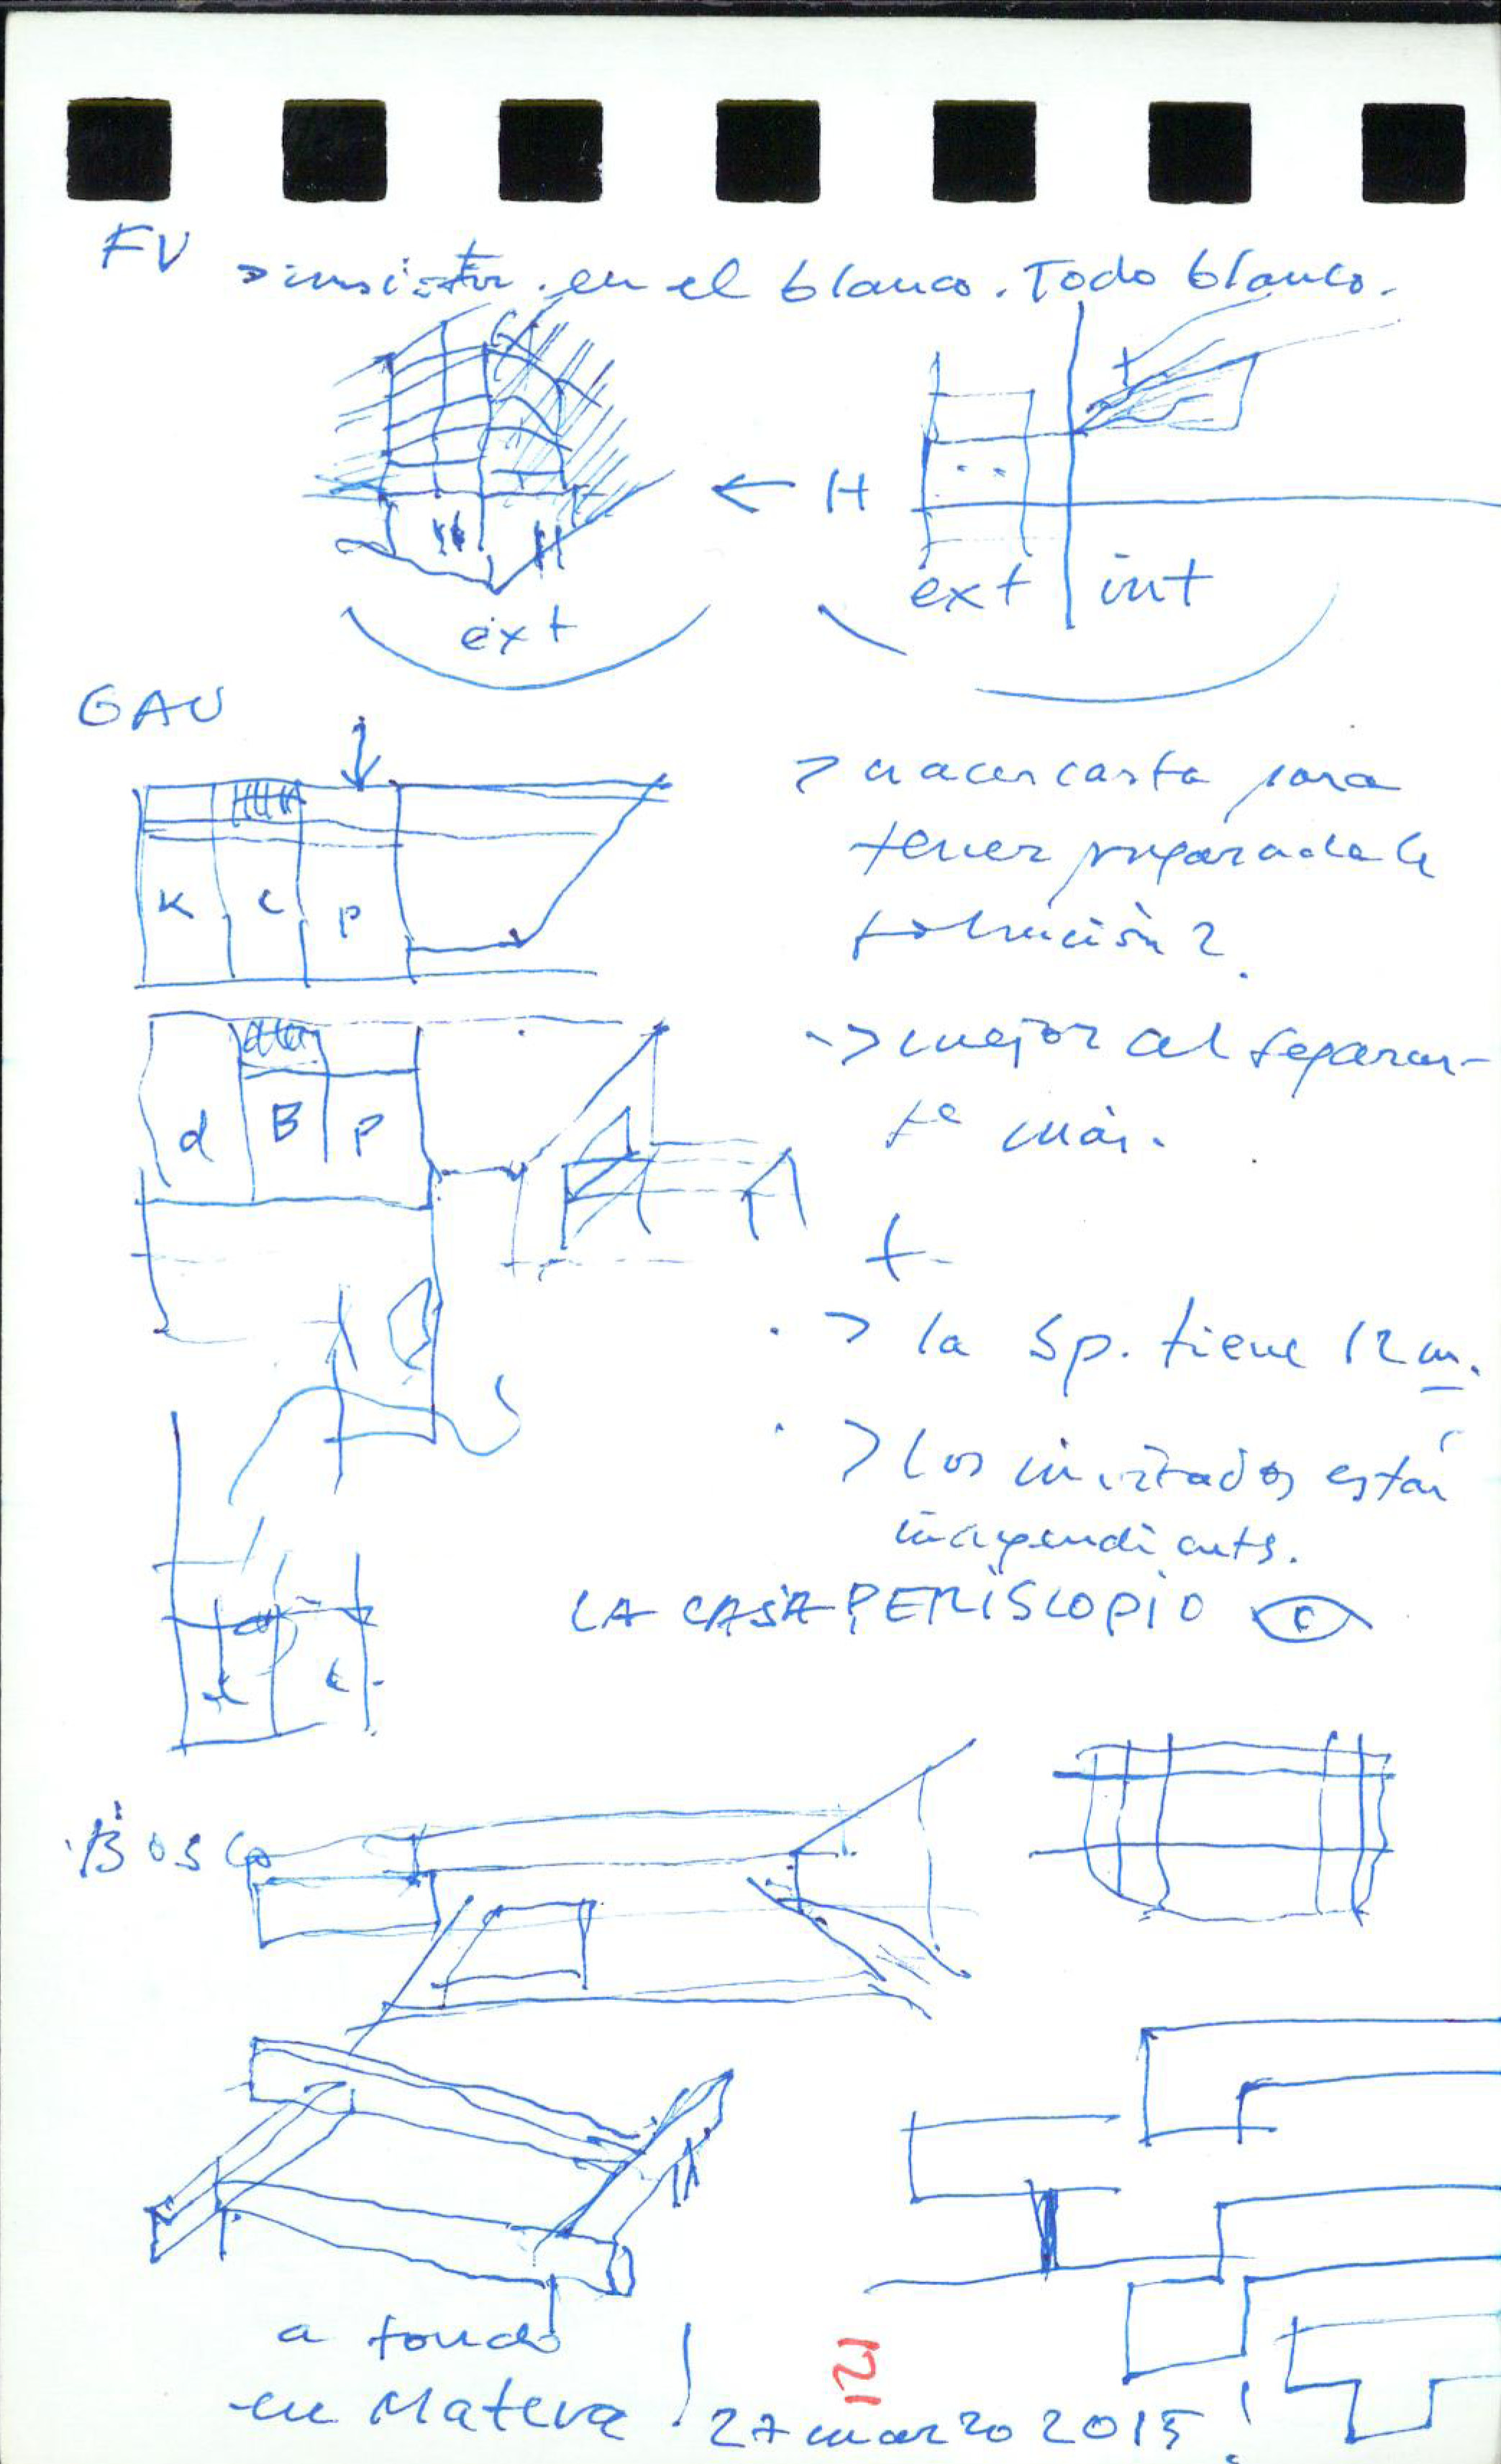 FV
> insistir en el blanco. Todo blanco.
← H
ext | int
ext
GAU
> hacer casita para
tener preparada la
solución 2.
K C P
-> mejor al separar-
se más.
d B P
+
> la Sp. tiene 12 m.
> los invitados están
independients.
LA CASA PERISCOPIO
BOSCO
a fondo
en Matera !
27 marzo 2015 !